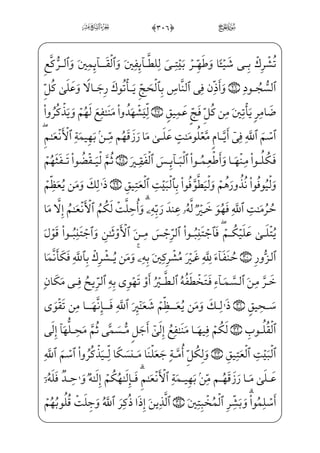 ﴿٣٠٦﴾
تُشْرِكْ بِى شَيْـًٔا وَطَهِّرْ بَيْتِىَ لِلطَّآئِفِينَ وَٱلْقَآئِمِينَ وَٱلرُّكَّعِ
ٱلسُّجُودِ ۝٢٦ وَأَذِّن فِى ٱلنَّاسِ بِٱلْحَجِّ يَأْتُوكَ رِجَالًا وَعَلَىٰ كُلِّ
ضَامِرٍ يَأْتِينَ مِن كُلِّ فَجٍّ عَمِيقٍ ۝٢٧ لِّيَشْهَدُوا۟ مَنَٰفِعَ لَهُمْ وَيَذْكُرُوا۟
ٱسْمَ ٱللَّهِ فِىٓ أَيَّامٍ مَّعْلُومَٰتٍ عَلَىٰ مَا رَزَقَهُم مِّنۢ بَهِيمَةِ ٱلْأَنْعَٰمِ ۖ
فَكُلُوا۟ مِنْهَا وَأَطْعِمُوا۟ ٱلْبَآئِسَ ٱلْفَقِيرَ ۝٢٨ ثُمَّ لْيَقْضُوا۟ تَفَثَهُمْ
وَلْيُوفُوا۟ نُذُورَهُمْ وَلْيَطَّوَّفُوا۟ بِٱلْبَيْتِ ٱلْعَتِيقِ ۝٢٩ ذَٰلِكَ وَمَن يُعَظِّمْ
حُرُمَٰتِ ٱللَّهِ فَهُوَ خَيْرٌ لَّهُۥ عِندَ رَبِّهِۦ ۗ وَأُحِلَّتْ لَكُمُ ٱلْأَنْعَٰمُ إِلَّا مَا
يُتْلَىٰ عَلَيْكُمْ ۖ فَٱجْتَنِبُوا۟ ٱلرِّجْسَ مِنَ ٱلْأَوْثَٰنِ وَٱجْتَنِبُوا۟ قَوْلَ
ٱلزُّورِ ۝٣٠ حُنَفَآءَ لِلَّهِ غَيْرَ مُشْرِكِينَ بِهِۦ ۚ وَمَن يُشْرِكْ بِٱللَّهِ فَكَأَنَّمَا
خَرَّ مِنَ ٱلسَّمَآءِ فَتَخْطَفُهُ ٱلطَّيْرُ أَوْ تَهْوِى بِهِ ٱلرِّيحُ فِى مَكَانٍ
سَحِيقٍ ۝٣١ ذَٰلِكَ وَمَن يُعَظِّمْ شَعَٰٓئِرَ ٱللَّهِ فَإِنَّهَا مِن تَقْوَى
ٱلْقُلُوبِ ۝٣٢ لَكُمْ فِيهَا مَنَٰفِعُ إِلَىٰٓ أَجَلٍ مُّسَمًّى ثُمَّ مَحِلُّهَآ إِلَى
ٱلْبَيْتِ ٱلْعَتِيقِ ۝٣٣ وَلِكُلِّ أُمَّةٍ جَعَلْنَا مَنسَكًا لِّيَذْكُرُوا۟ ٱسْمَ ٱللَّهِ
عَلَىٰ مَا رَزَقَهُم مِّنۢ بَهِيمَةِ ٱلْأَنْعَٰمِ ۗ فَإِلَٰهُكُمْ إِلَٰهٌ وَٰحِدٌ فَلَهُۥٓ
أَسْلِمُوا۟ ۗ وَبَشِّرِ ٱلْمُخْبِتِينَ ۝٣٤ ٱلَّذِينَ إِذَا ذُكِرَ ٱللَّهُ وَجِلَتْ قُلُوبُهُمْ